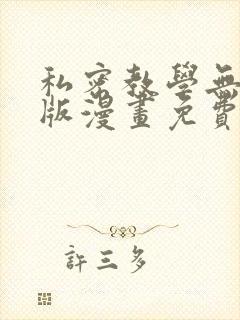 私密教學無
版漫畫免費
許三多